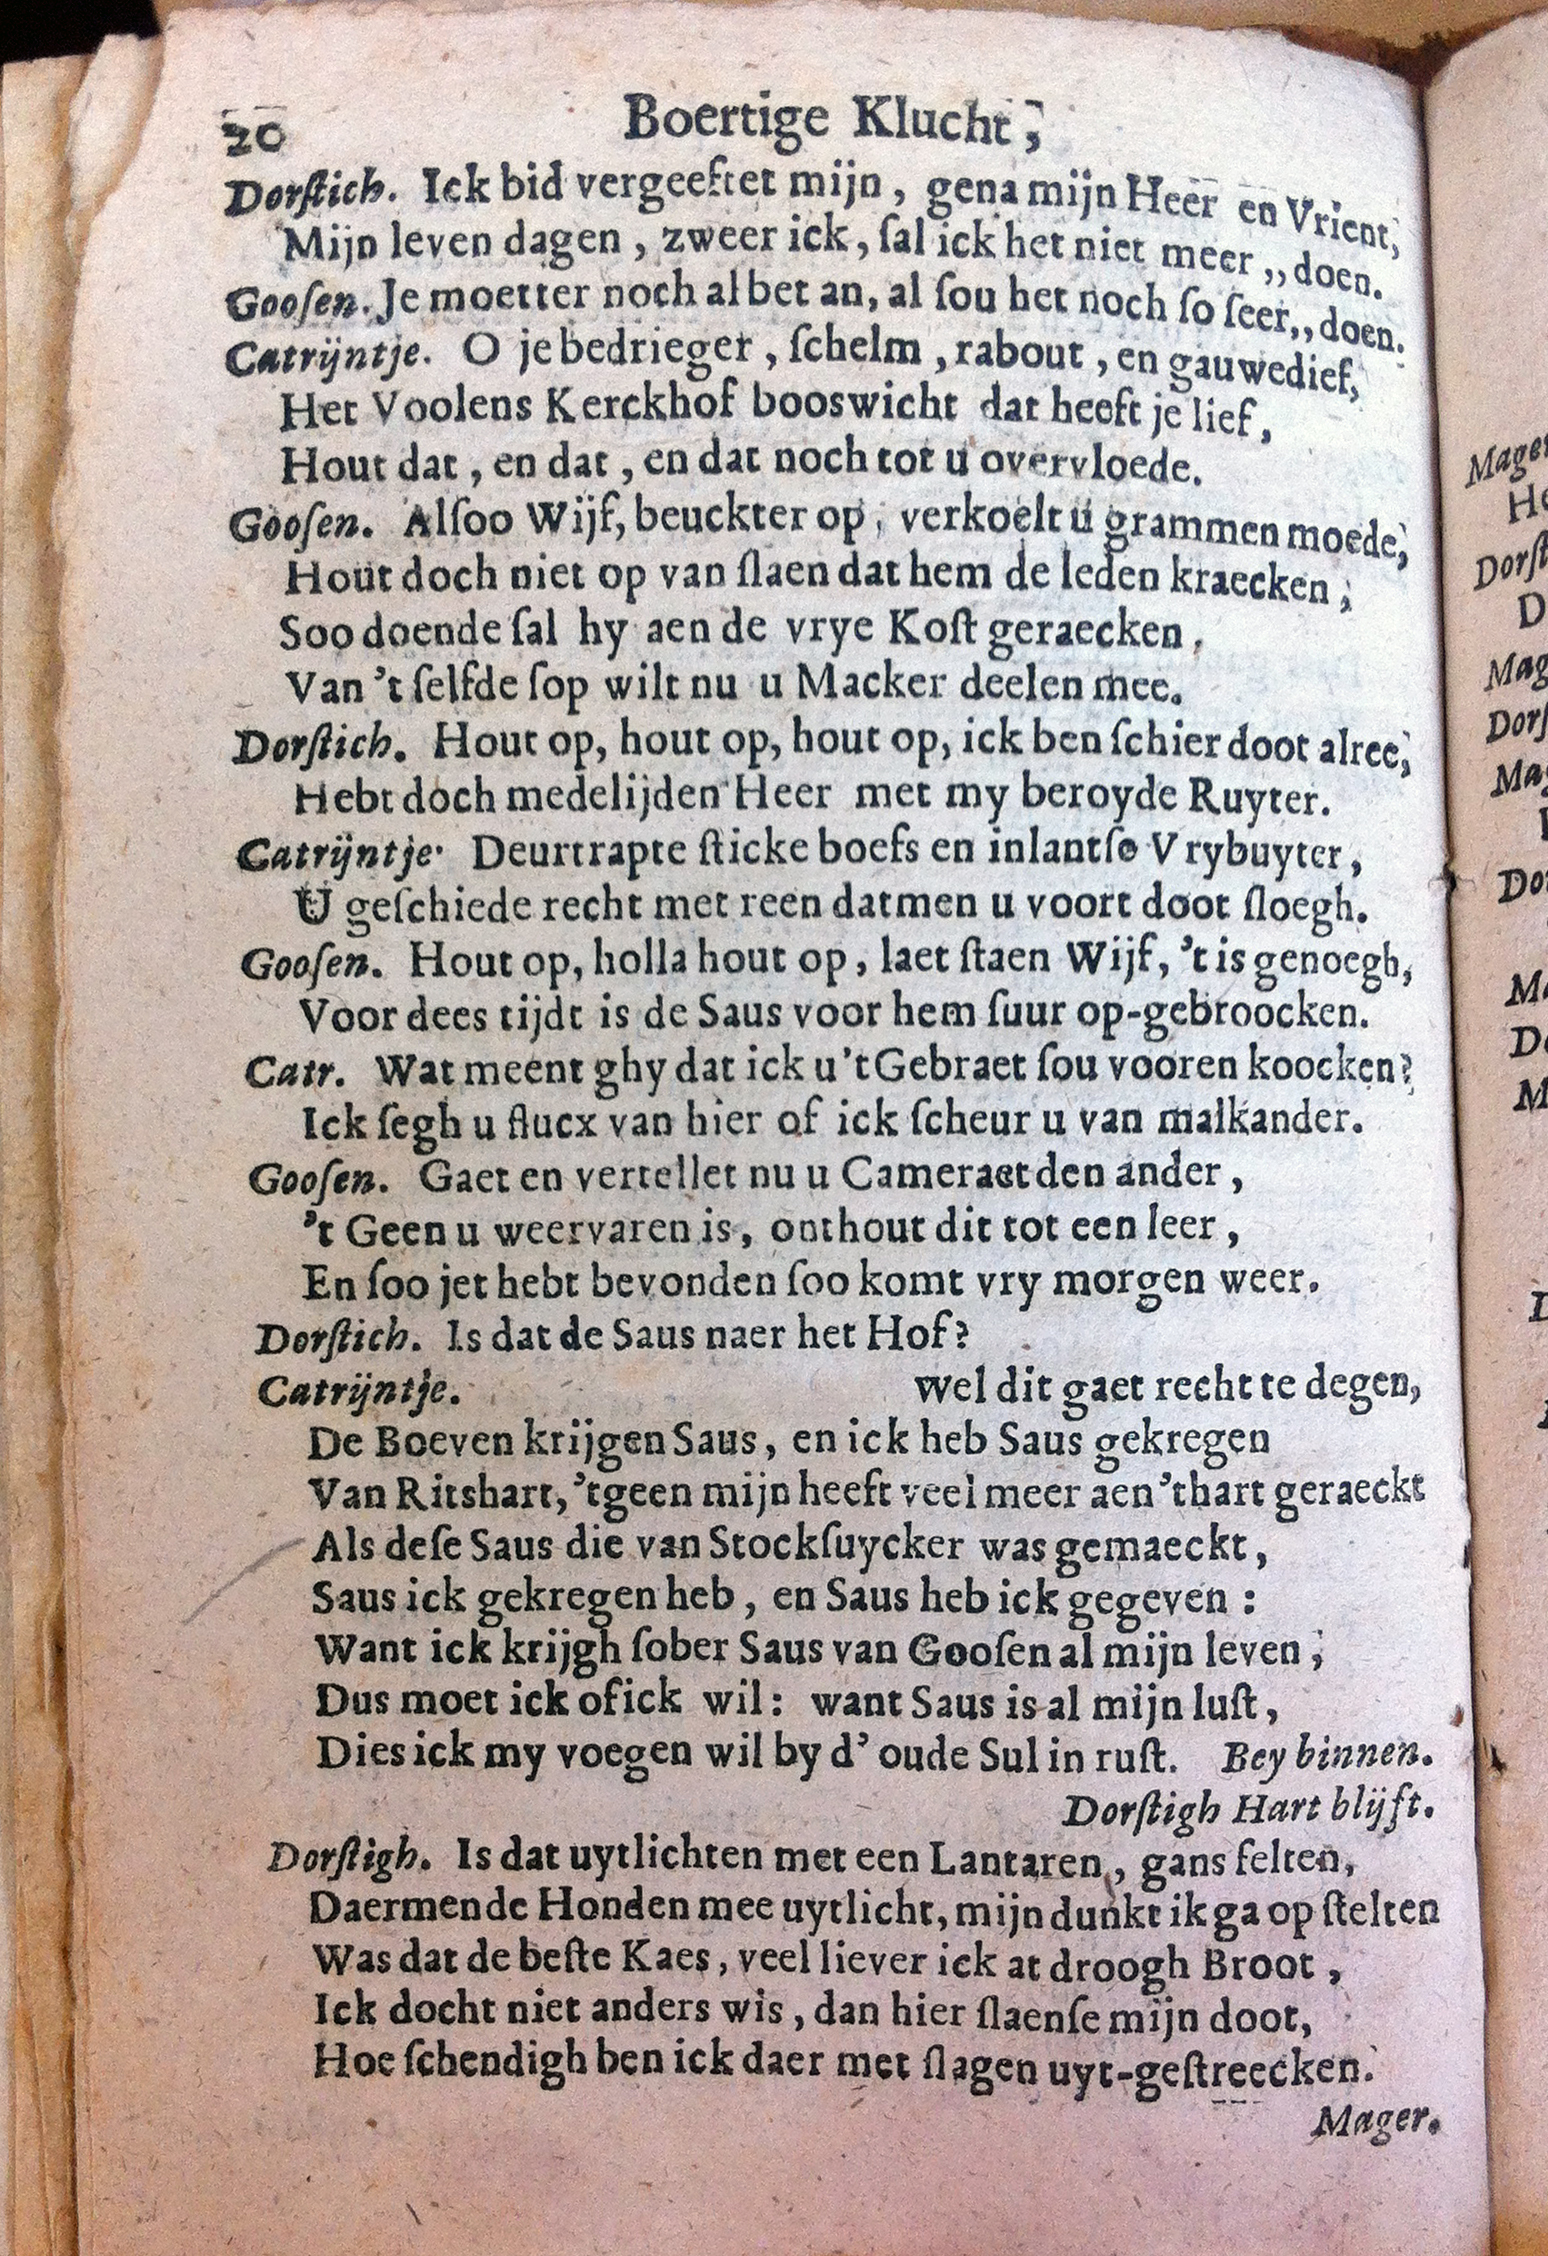 20 Boertige Klucht,
Dorſtich. Ick bid vergeeftet mijn, gena mijn Heer en Vrient,
Mijn leven dagen, zweer ick, ſal ick het niet meer,, doen.
Gooſen. Je moetter noch al bet an, al ſou het noch ſo ſeer,, doen.
Catrijntje. O je bedrieger, ſchelm, rabout, en gauwedief,
Het Voolens Kerckhof booswicht dat heeft je lief,
Hout dat, en dat, en dat noch tot u overvloede.
Gooſen. Alſoo Wijf, beuckter op, verkoelt u grammen moede,
Hout doch niet op van ſlaen dat hem de leden kraecken,
Soo doende ſal hy aen de vrye Koſt geraecken,
Van 't ſelfde ſop wilt nu u Macker deelen mee.
Dorſtich. Hout op, hout op, hout op, ick ben ſchier doot alree,
Hebt doch medelijden Heer met my beroyde Ruyter.
Catrijntje. Deurtrapte ſticke boefs en inlantſe Vrybuyter,
U geſchiede recht met reen datmen u voort doot ſloegh.
Gooſen. Hout op, holla hout op, laet ſtaen Wijf, 't is genoegh,
Voor dees tijdt is de Saus voor hem ſuur op-gebroocken.
Catr. Wat meent ghy dat ick u 't Gebraet ſou vooren koocken?
Ick ſegh u flucx van hier of ick ſcheur u van malkander.
Gooſen. Gaet en vertellet nu u Cameraet den ander,
't Geen u weervaren is, onthout dit tot een leer,
En ſoo jet hebt bevonden ſoo komt vry morgen weer.
Dorſtich. Is dat de Saus naer het Hof?
Catrijntje. Wel dit gaet recht te degen,
De Boeven krijgen Saus, en ick heb Saus gekregen
Van Ritshart, 't geen mijn heeft veel meer aen 't hart geraeckt
Als deſe Saus die van Stockſuycker was gemaeckt,
Saus ick gekregen heb, en Saus heb ick gegeven:
Want ick krijgh ſober Saus van Gooſen al mijn leven,
Dus moet ick of ick wil: want Saus is al mijn luſt,
Dies ick my voegen wil by d' oude Sul in ruſt. Bey binnen.
Dorſtigh Hart blijft.
Dorſtigh. Is dat uytlichten met een Lantaren, gans felten,
Daermen de Honden mee uytlicht, mijn dunkt ik ga op ſtelten
Was dat de beſte Kaes, veel liever ick at droogh Broot,
Ick docht niet anders wis, dan hier ſlaenſe mijn doot,
Hoe ſchendigh ben ick daer met ſlagen uyt-geſtreecken.
Mager.